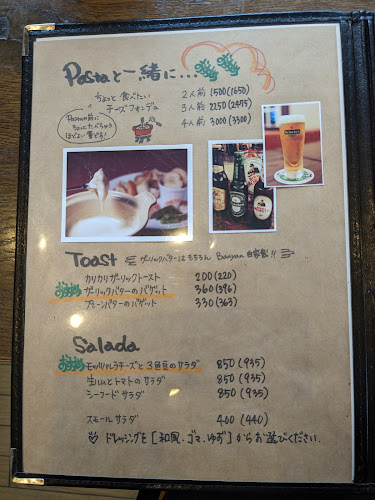 Pastaと一緒に...
ちょっと食べたい
チーズフォンデュ
2人前 1500(1650)
3人前 2250(2475)
4人前 3000(3300)
Pastaの前に
ちょっとたべちゃう
ほどよい量です!
Heineken
Toast
ガーリックバターはもちろん Bunjin 自家製!!
カリカリガーリックトースト 200(220)
おすすめ ガーリックバターのバゲット 360(396)
プレーンバターのバゲット 330(363)
Salada
おすすめ モッツァレラチーズと3色豆のサラダ 850(935)
生ハムとトマトのサラダ 850(935)
シーフードサラダ 850(935)
スモールサラダ 400(440)
♡ ドレッシングを[和風、ゴマ、ゆず]からお選びください。